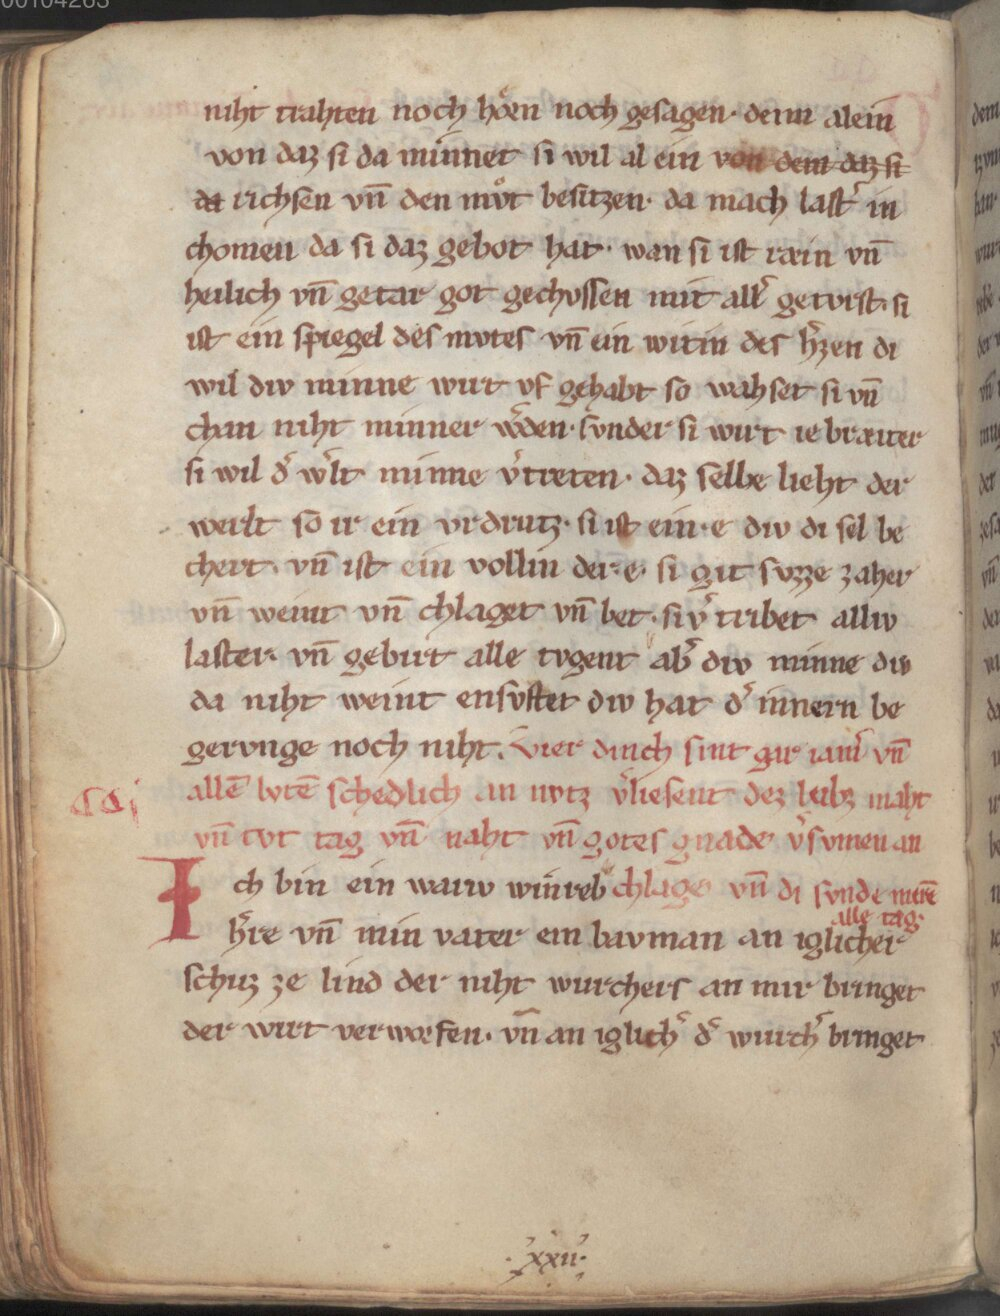 00104263
niht trahten noch hoͤren noch gesagen· denn alein
von daz si da minnet si wil al ein von dem daz si
da richsen vn̄ den mvͦt besitzen· da mach last᷑ in
chomen da si daz gebot hat· wan si ist ræin vn̄
heilich vn̄ getar got gechvssen mit all᷑ getvrst· si
ist ein spiegel des mvtes vn̄ ein witin des h᷑zen di
wil div minne wirt vf gehabt so wahset si vn̄
chan niht minner w᷑den· svnder si wirt ie bræiter
si wil d᷑ w᷑lt minne v᷑treten· daz selbe lieht der
werlt so ir ein vrdrutz· si ist ein·e div di sel be
chert· vn̄ ist ein vollin der·e· si git svzze zaher
vn̄ weint vn̄ chlaget vn̄ bet· si v᷑tribet alliv
laster· vn̄ gebirt alle tvgent ab᷑ div minne div
da niht weint ensvftet div hat d᷑ innern be
gervnge noch niht. Vier dinch sint gar iam᷑ vn̄
allē lvtē schedlich an nvtz v᷑liesent dez leibz maht
vn̄ tvt tag vn̄ naht vn̄ gotes gnade v᷑svmen an
Ich bin ein wariv winreb chlage vn̄ di svnde merē
alle tag·
h᷑re vn̄ min vater ein bavman an iglicher
schuz ze lind der niht wurchers an mir bringet
der wirt verworfen· vn̄ an iglich᷑ d᷑ wurch᷑ bringet
·xxii·